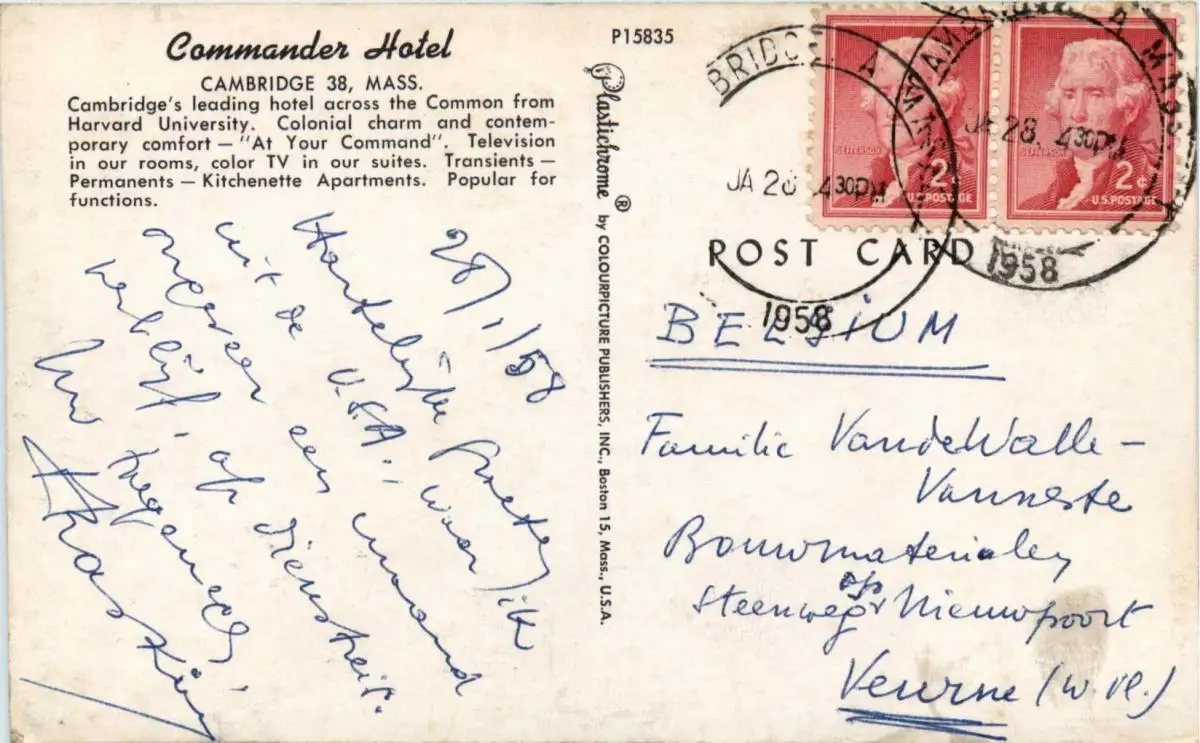 Commander Hotel
CAMBRIDGE 38, MASS.
Cambridge's leading hotel across the Common from
Harvard University. Colonial charm and contem-
porary comfort — "At Your Command". Television
in our rooms, color TV in our suites. Transients —
Permanents — Kitchenette Apartments. Popular for
functions.
28/1/58
Hartelijke Groeten
uit de U.S.A. waar ik
ongeveer een maand
verblijf, op
Uw
P15835
Plastichrome ® by COLOURPICTURE PUBLISHERS, INC., Boston 15, Mass., U.S.A.
BRIDGE A MASS
JA 28 4 30PM
1958
CAMBRIDGE A MASS
JA 28 4 30PM
1958
JEFFERSON
2¢
U.S. POSTAGE
JEFFERSON
2¢
U.S. POSTAGE
POST CARD
BELGIUM
Familie VandeWalle -
Vanneste
Bouwmaterialen
Steenweg op Nieuwpoort
Veurne (W. Vl.)